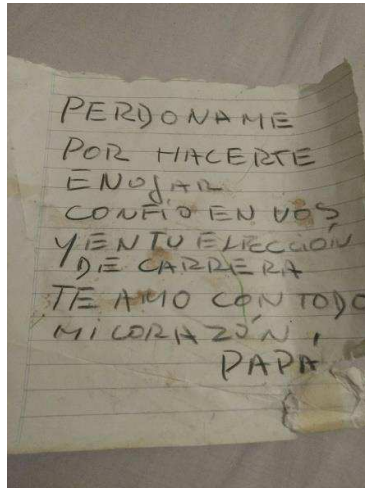 PERDONAME
POR HACERTE
ENOJAR
CONFÍO EN VOS
Y EN TU ELECCIÓN
DE CARRERA
TE AMO CON TODO
MI CORAZÓN,
PAPA.